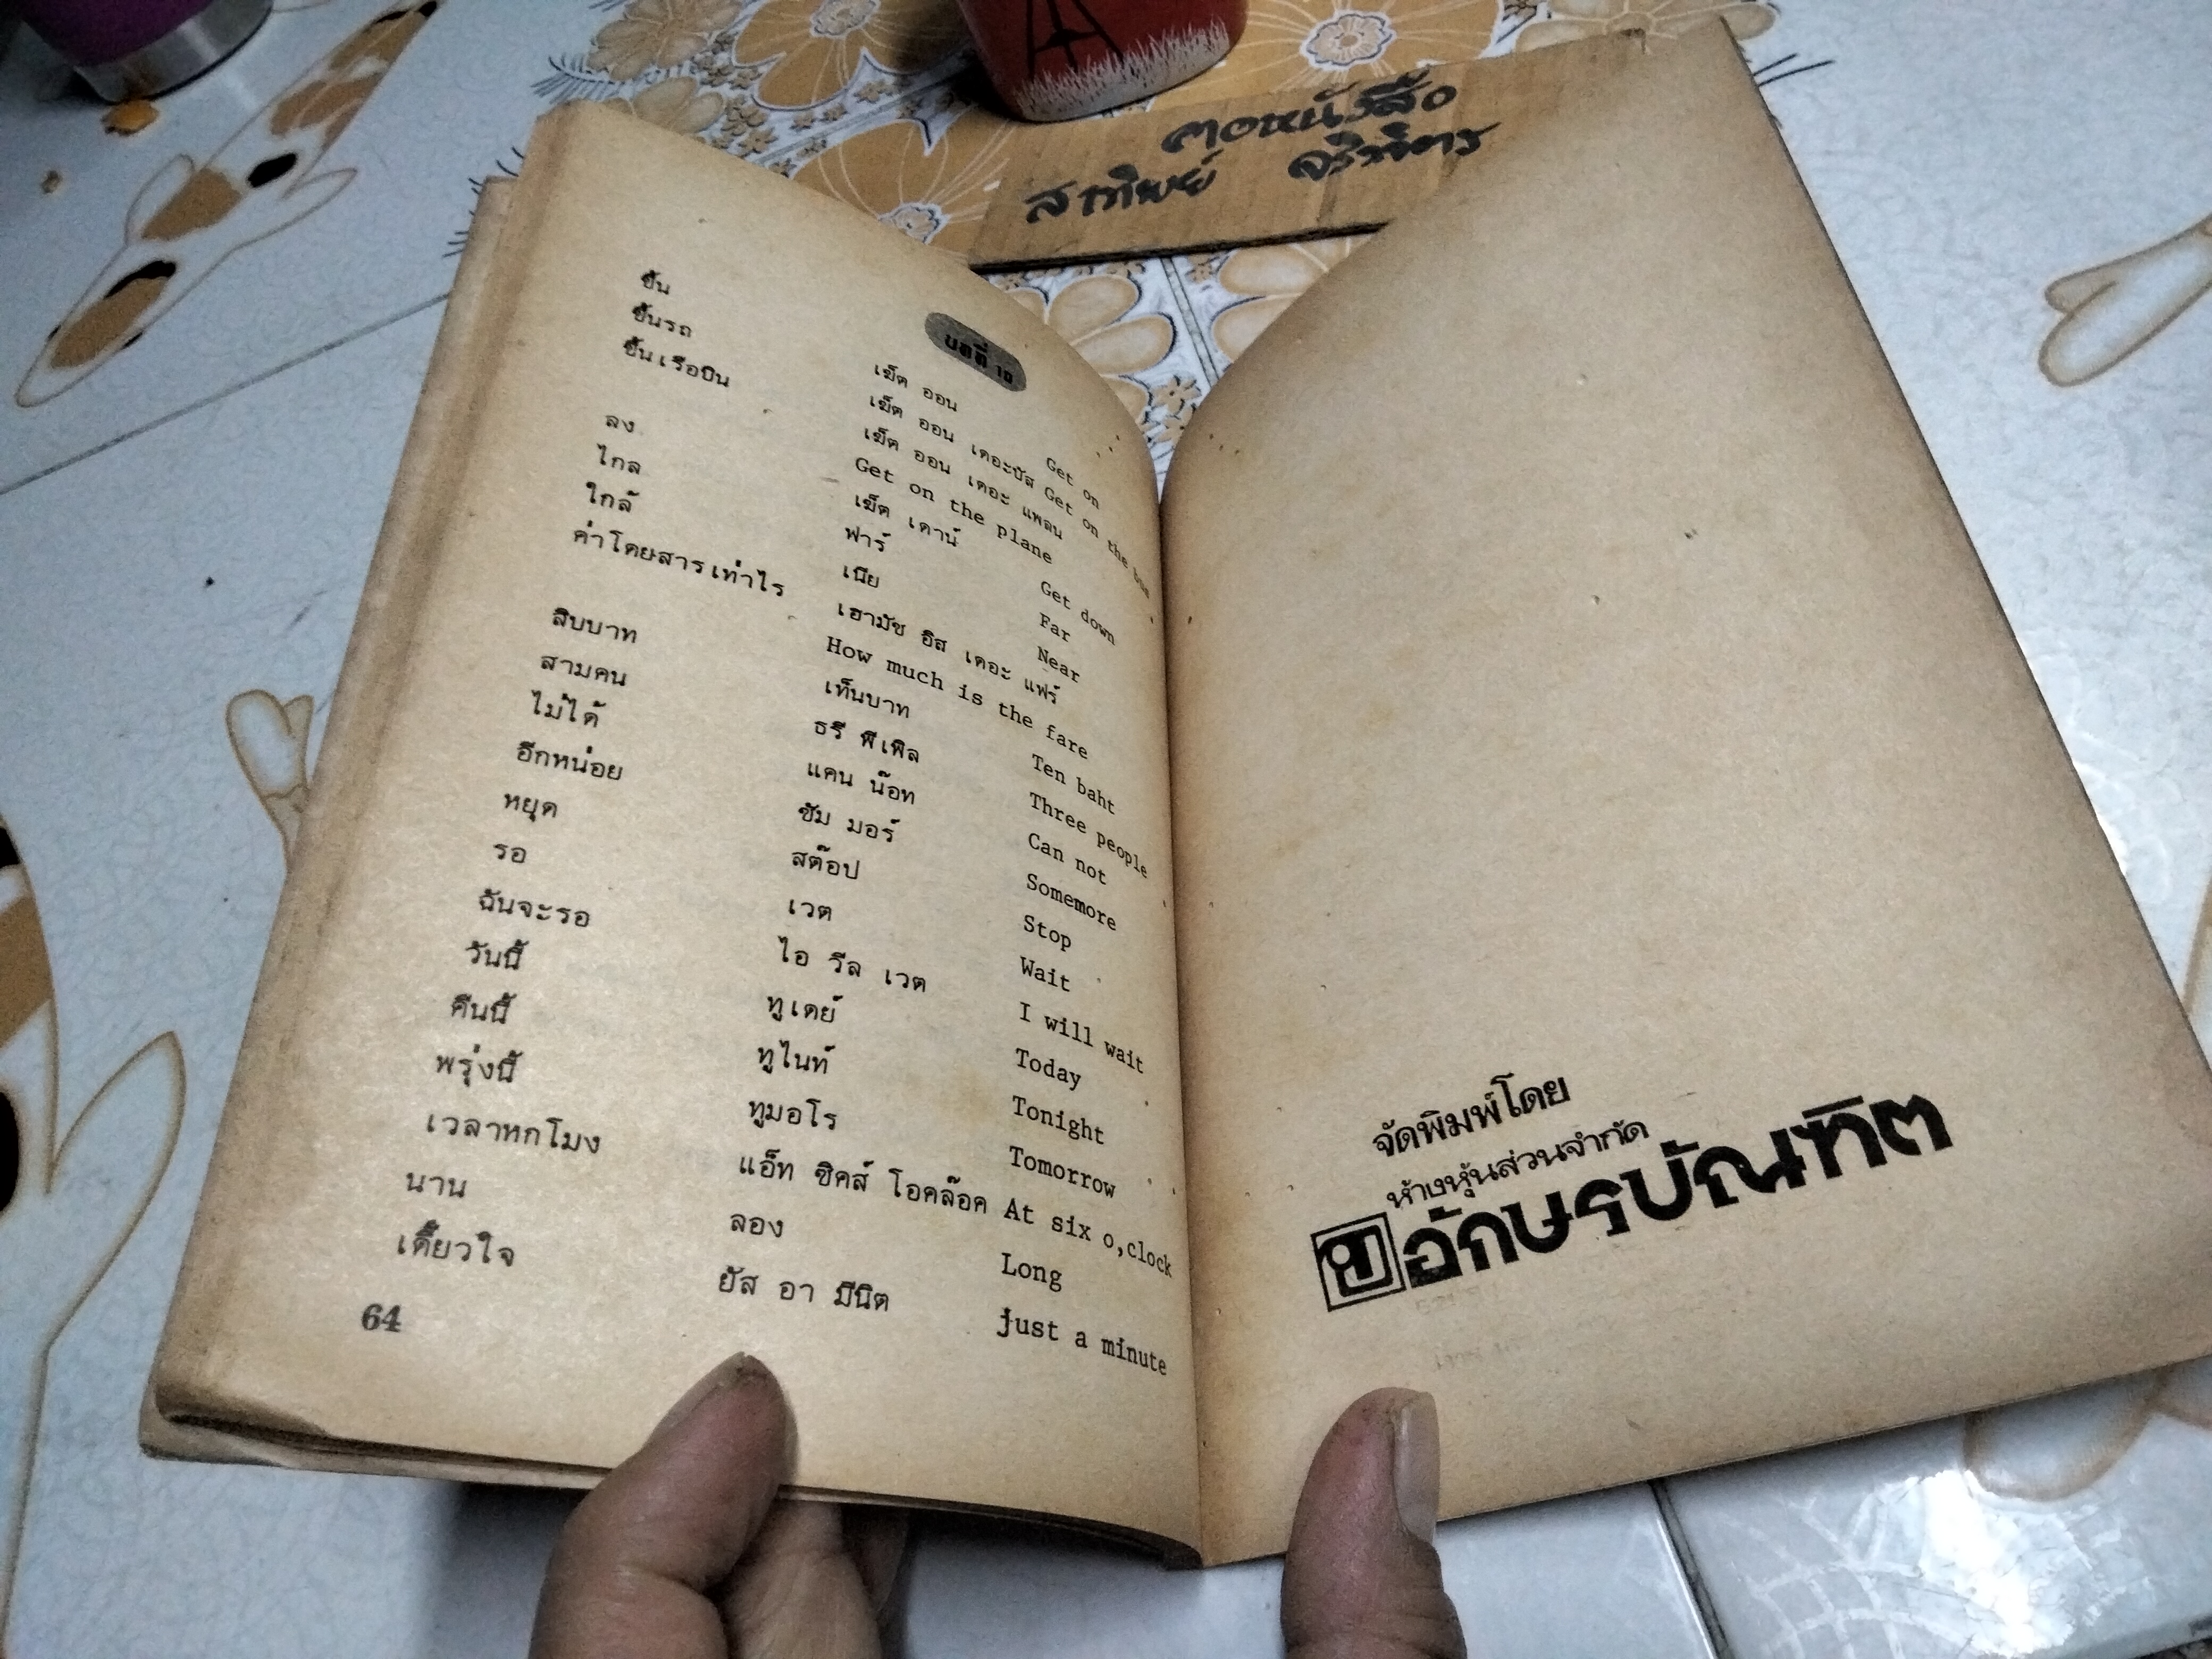 ฅอหนังสือ
สาทิพย์
บทที่ 10
ขึ้น เข็ค ออน Get on
ขึ้นรถ เข็ค ออน เดอะบัส Get on the bus
ขึ้นเรือบิน เข็ค ออน เดอะ แพลน
Get on the plane
ลง เข็ค เดาน์ Get down
ไกล ฟาร์ Far
ใกล้ เนีย Near
ค่าโดยสารเท่าไร เฮามัช อิส เดอะ แฟร์
How much is the fare
สิบบาท เท็นบาท Ten baht
สามคน ธรี พีเพิล Three people
ไม่ได้ แคน น๊อท Can not
อีกหน่อย ซัม มอร์ Somemore
หยุด สต๊อป Stop
รอ เวต Wait
ฉันจะรอ ไอ วีล เวต I will wait
วันนี้ ทูเดย์ Today
คืนนี้ ทูไนท์ Tonight
พรุ่งนี้ ทูมอโร Tomorrow
เวลาหกโมง แอ็ท ซิคส์ โอคล๊อค At six o,clock
นาน ลอง Long
เดี๋ยวใจ ยัส อา มีนิต just a minute
64
จัดพิมพ์โดย
ห้างหุ้นส่วนจำกัด
อักษรบัณฑิต